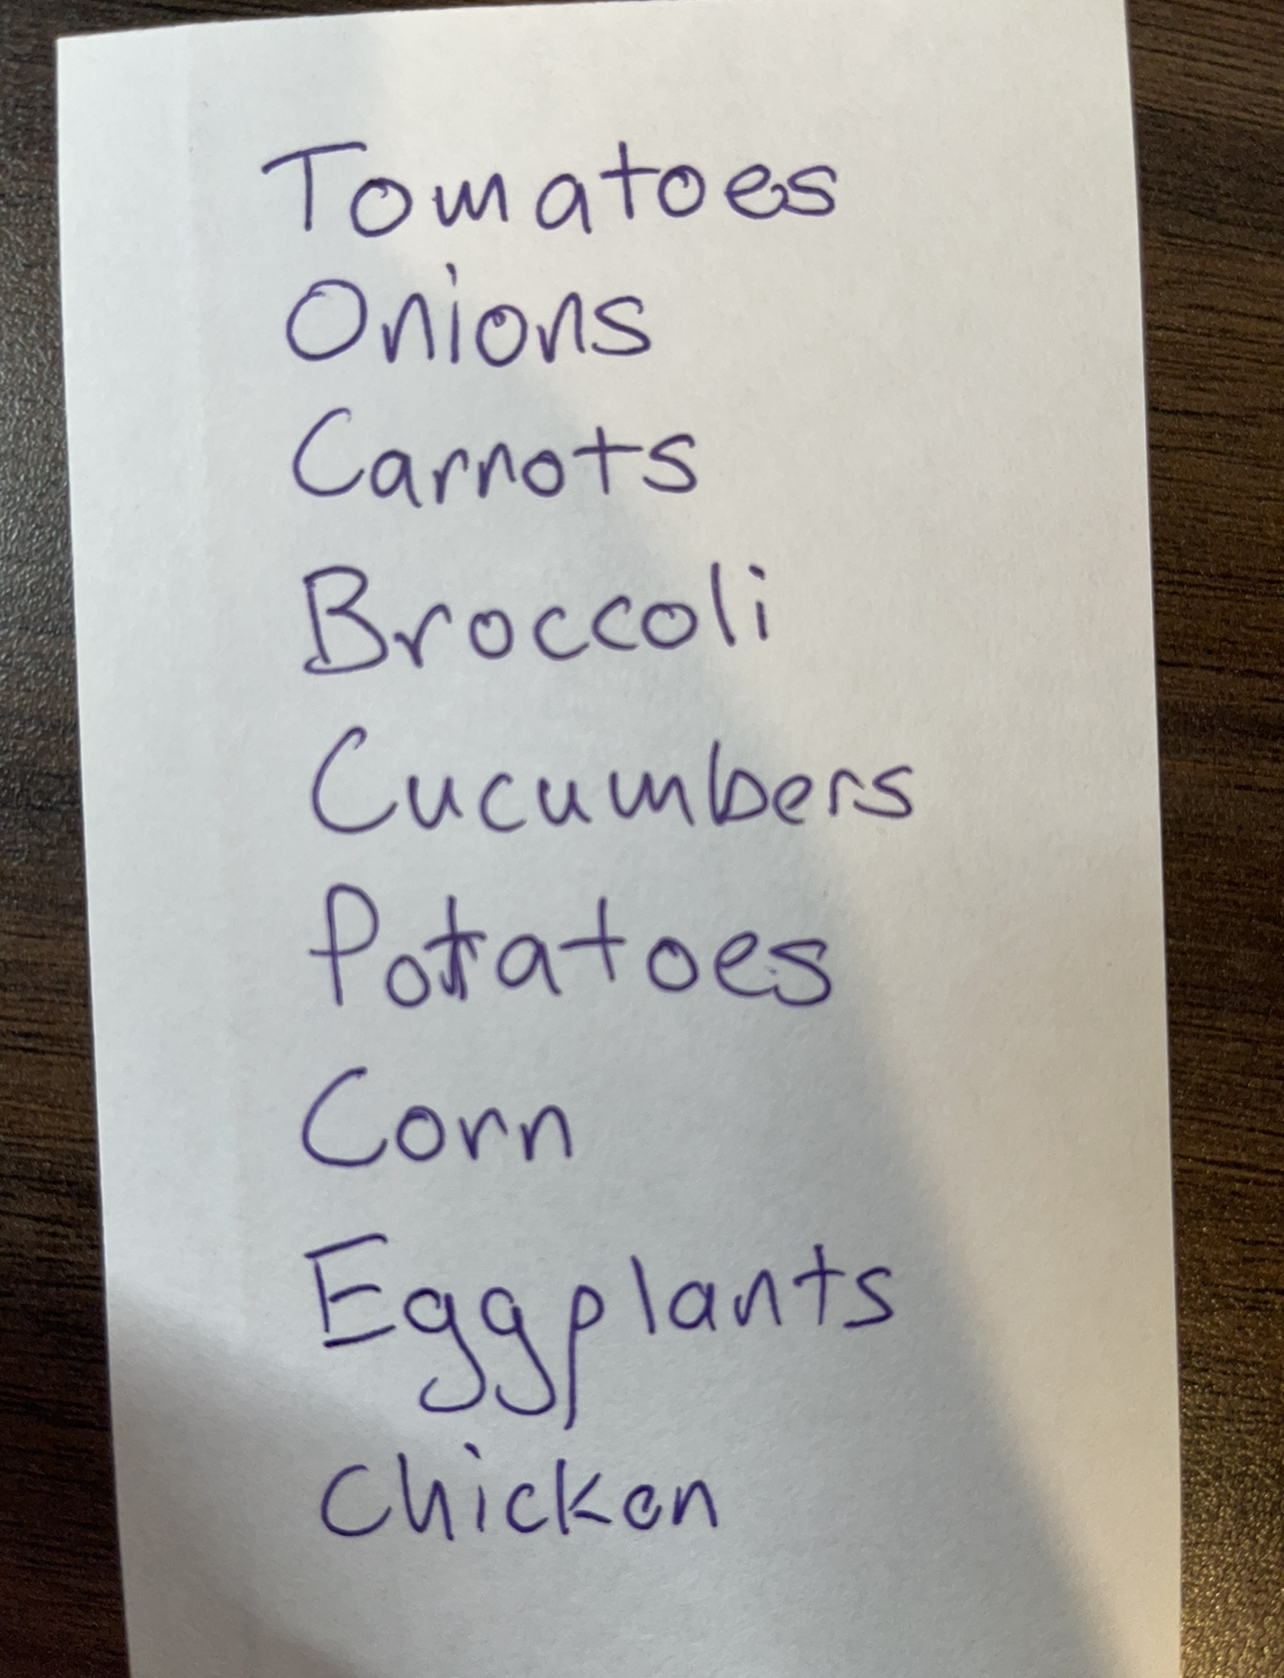 Tomatoes
Onions
Carrots
Broccoli
Cucumbers
Potatoes
Corn
Eggplants
Chicken